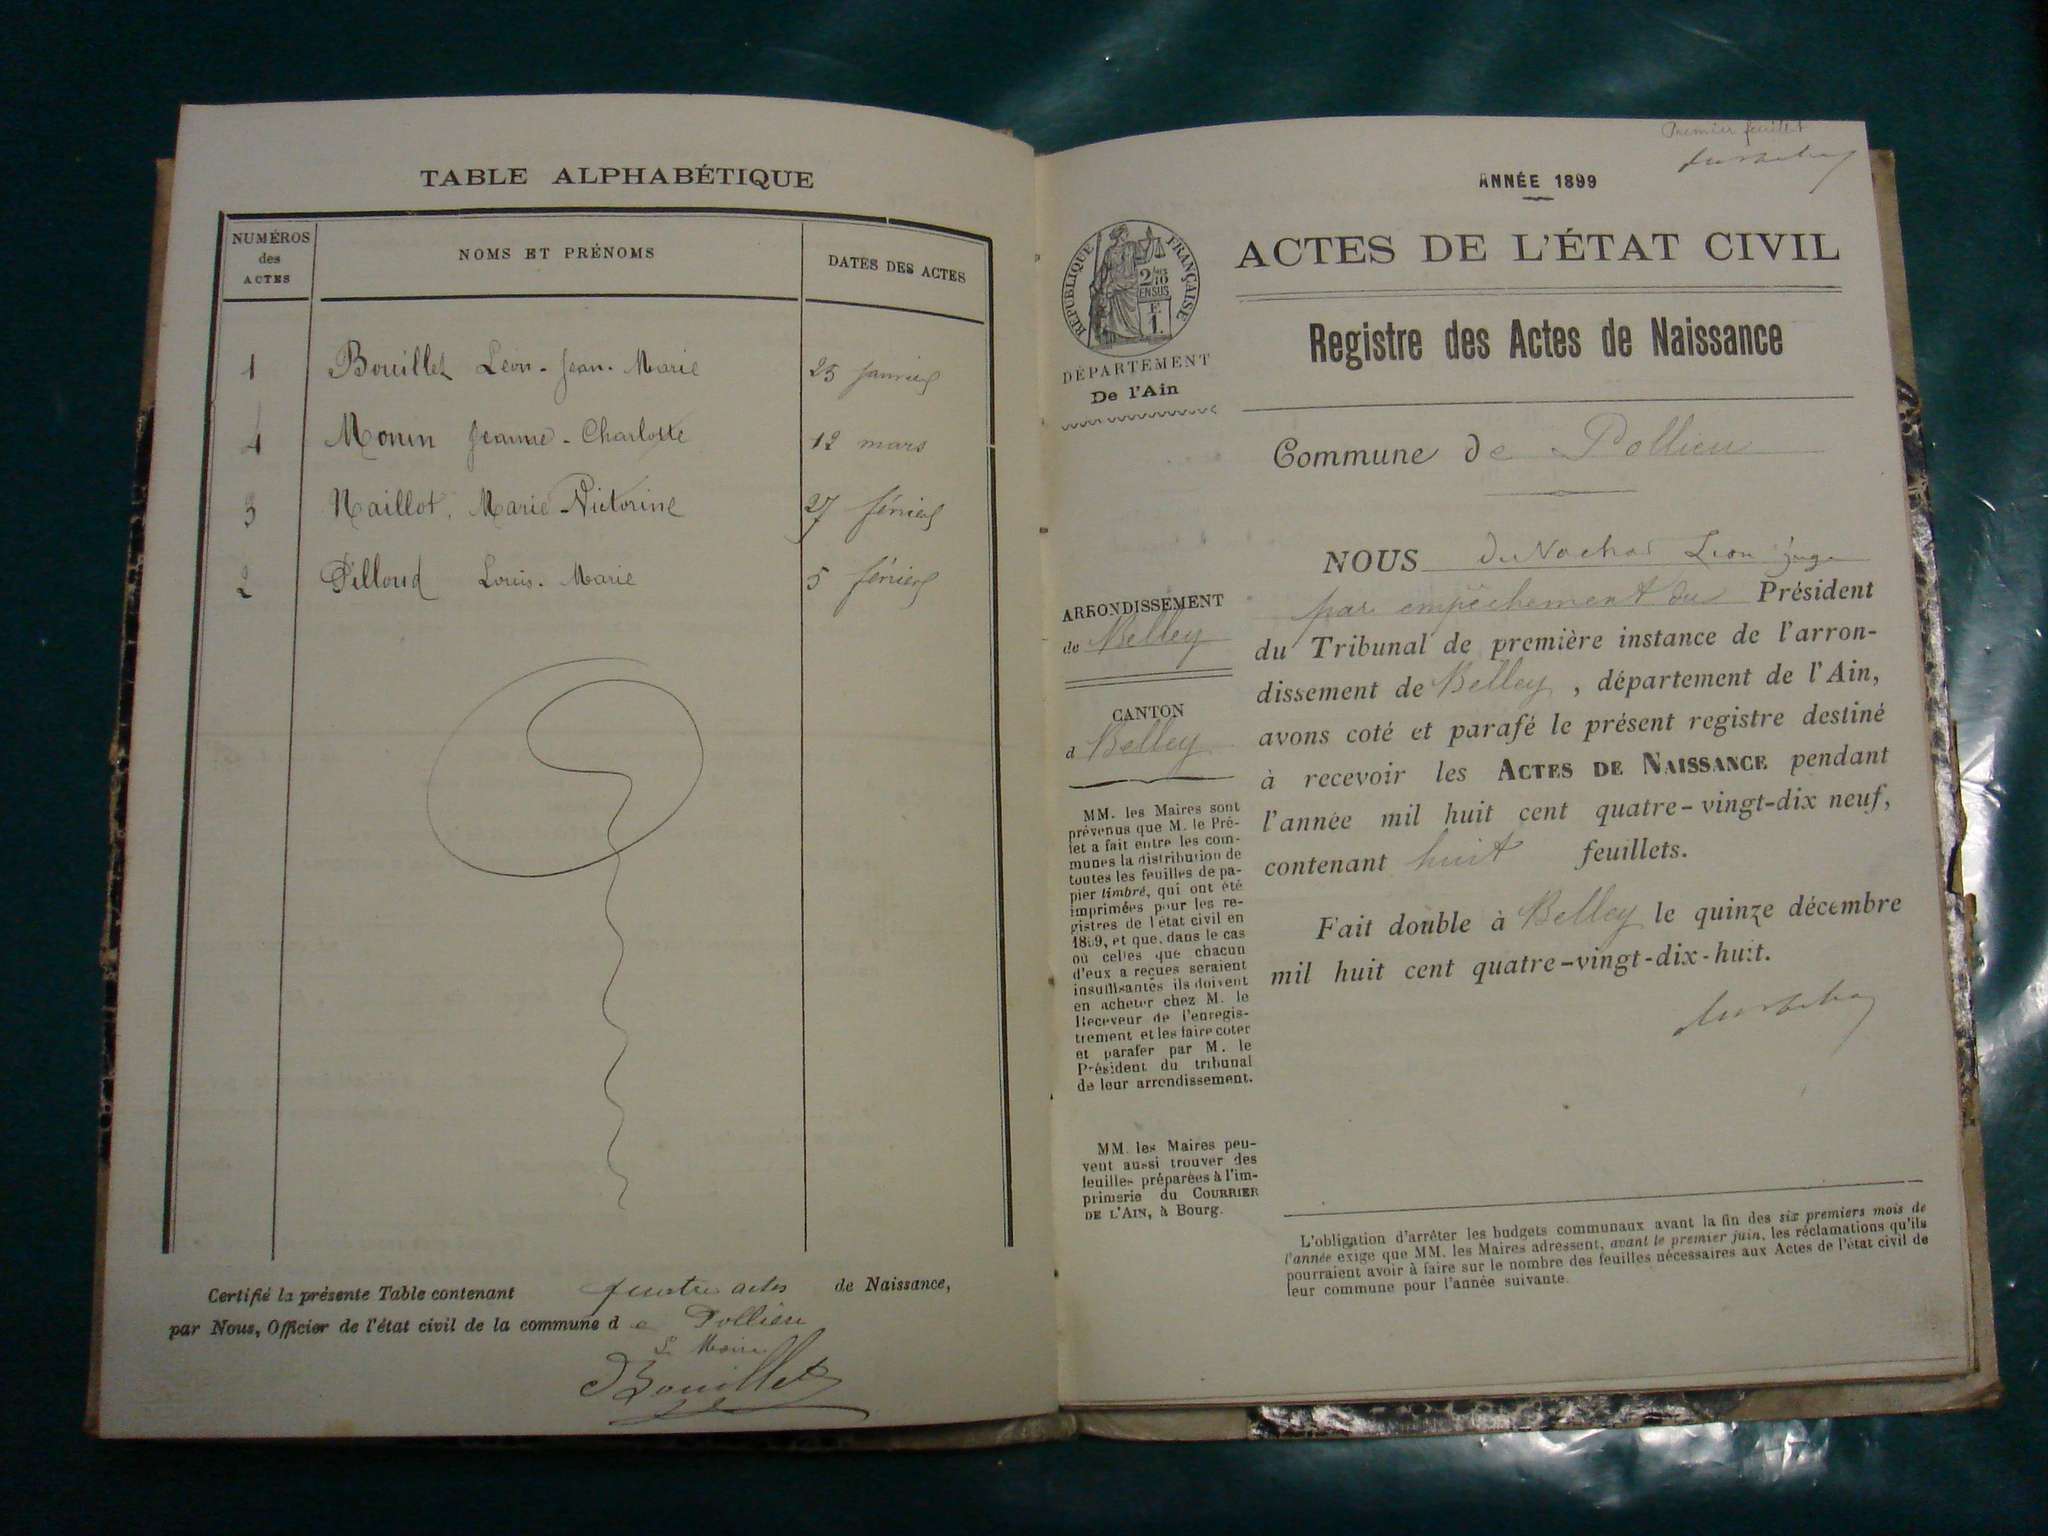 TABLE ALPHABÉTIQUE
NUMÉROS des ACTES
NOMS ET PRÉNOMS
DATES DES ACTES
1 Bouillet Léon-Jean-Marie 25 janvier
4 Monin Jeanne-Charlotte 12 mars
3 Naillot, Marie-Victorine 27 février
2 Pilloud Louis-Marie 5 février
Certifié la présente Table contenant quatre actes de Naissance,
par Nous, Officier de l'état civil de la commune de Pollieu
Le Maire
Bouillet
Premier feuillet
ANNÉE 1899
ACTES DE L'ÉTAT CIVIL
RÉPUBLIQUE FRANÇAISE
2/10 EN SUS
F. 1.
DÉPARTEMENT
De l'Ain
Registre des Actes de Naissance
Commune de Pollieu
ARRONDISSEMENT
de Belley
CANTON
d Belley
MM. les Maires sont
prévenus que M. le Pré-
fet a fait entre les com-
munes la distribution de
toutes les feuilles de pa-
pier timbré, qui ont été
imprimées pour les re-
gistres de l'état civil en
1899, et que, dans le cas
où celles que chacun
d'eux a reçues seraient
insuffisantes ils doivent
en acheter chez M. le
Receveur de l'enregis-
trement et les faire coter
et parafer par M. le
Président du tribunal
de leur arrondissement.
MM. les Maires peu-
vent aussi trouver des
feuilles préparées à l'im-
primerie du COURRIER
DE L'AIN, à Bourg.
NOUS Léon juge
par empêchement du Président
du Tribunal de première instance de l'arron-
dissement de Belley, département de l'Ain,
avons coté et parafé le présent registre destiné
à recevoir les ACTES DE NAISSANCE pendant
l'année mil huit cent quatre-vingt-dix neuf,
contenant huit feuillets.
Fait double à Belley le quinze décembre
mil huit cent quatre-vingt-dix-huit.
L'obligation d'arrêter les budgets communaux avant la fin des six premiers mois de
l'année exige que MM. les Maires adressent, avant le premier juin, les réclamations qu'ils
pourraient avoir à faire sur le nombre des feuilles nécessaires aux Actes de l'état civil de
leur commune pour l'année suivante.